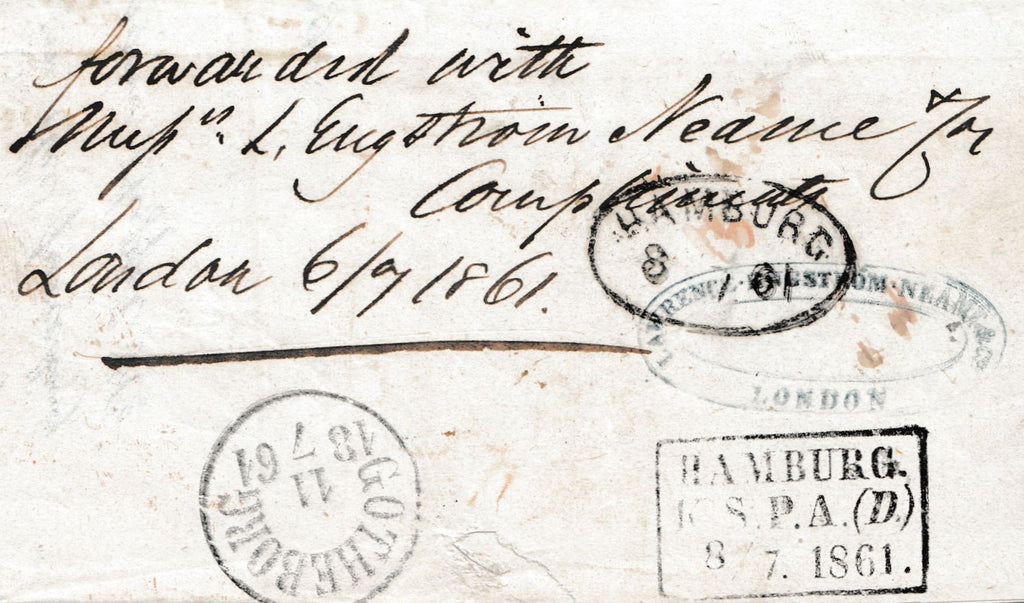 forwarded with
Mess^rs. L. Engström Neame &Co
Compliments
London 6/7 1861.
HAMBURG
8 7 61
LAWRENCE·ENGSTROM·NEAME & Co
LONDON
GÖTHEBORG
11
7
18 61
HAMBURG.
K. S.P.A.(D.)
8/7. 1861.